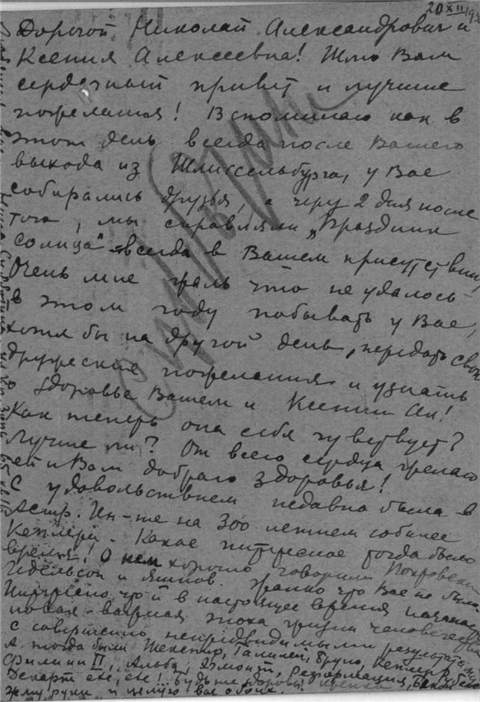 20 XII 193
Дорогой Николай Александрович и
Ксения Алексеевна! Шлю Вам
сердечный привет и лучшие
пожелания! Вспоминаю как в
этот день всегда после Вашего
выхода из Шлиссельбурга, у Вас
собирались друзья, а через 2 дня после
того, мы справляли "Праздник
Солнца" всегда в Вашем присутствии,
Очень мне жаль что не удалось
в этом году побывать у Вас,
хотя бы на другой день, передать свои
дружеские пожелания и узнать
о здоровье Вашем и Ксении Ал!
Как теперь она себя чувствует?
Лучше ли? От всего сердца желаю
ей и Вам доброго здоровья!
С удовольствием недавно была в
Астр. Ин-те на 300 летнем юбилее
Кеплера. Какое интересное тогда было
время! О нем хорошо говорили Покровский
Идельсон и Яшнов. Жалко что Вас не было
Интересно, что и в настоящее время началась
новая важная эпоха жизни человечества
с совершенно непредвидимыми результатами
А тогда были Шекспир, Галилей, Бруно, Кеплер,
Филипп II, Альба, Эгмонт, Реформация, Бэкон
Декарт etc, etc! Будьте здоровы
жму руки и целую вас обоих.